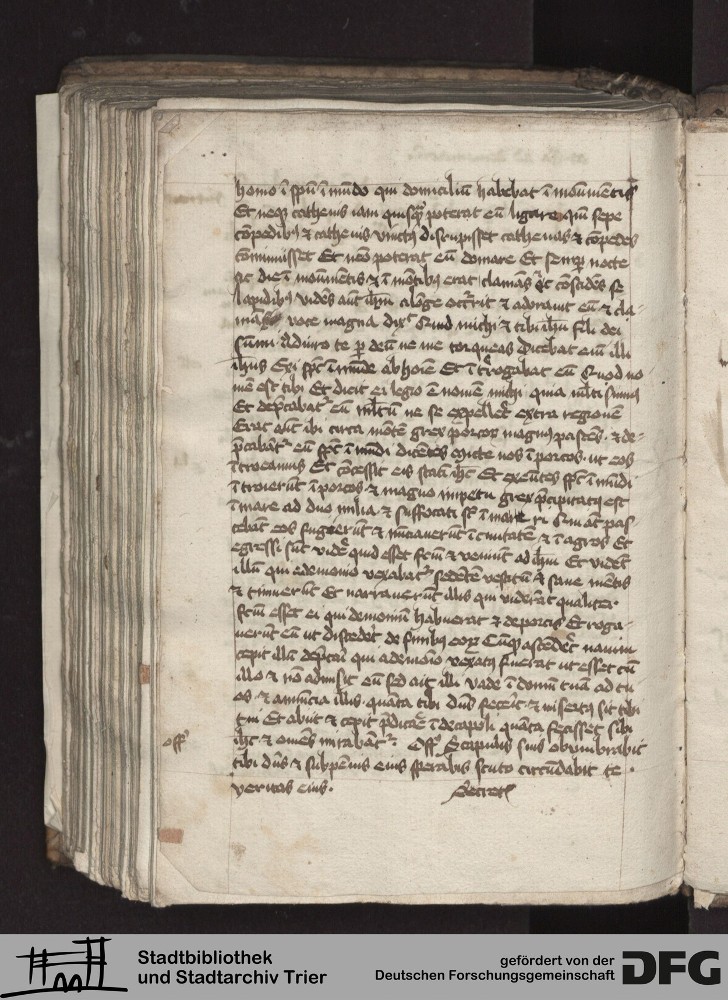 homo ī spū ī mūdo qui domiciliū habebat ī monumētis
Et neq; cathenis iam quisq̄ poterat eū ligare qm̄ sepe
cōpedib; & cathenis vinct; dirupisset cathenas & cōpedes
cōminuisset Et nēo poterat eū domare Et semp nocte
ac die ī monumētis & ī mōtib; erat clamās & cōcidēs se
lapidib; vidēs aūt ih̄m a lōge occ̄rrit & adorauit eū & cla-
mās voce magna dix̄ Quid michi & tibi ih̄u fili dei
sūmi Adiuro te p deū ne me torqueas Dicebat eīm illi
ih̄us Exi sp̄c ī mūde ab hoīe Et īt̄rogabat eū Quod no
mē est tibi Et dicit ei legio ē nomē michi quia m̄lti sumus
Et dep̄cabat̄ eū m̄ltū ne se expellēt extra regionē
Erat aūt ibi circa mōtē grex porcor̄ magn; pascēs · & de-
p̄cabāt̄ eū sp̄c ī mūdi dicētes mitte nos ī porcos · ut eos
ītroeamus Et cōcessit eis statī ih̄c Et exeūtes sp̄c ī mūdi
ītroierūt ī porcos & magno impetu grex p̄cipitat; est
ī mare ad duo milia & suffocati st̄ ī mare Qui aūt pas
cebāt eos fugierūt & nūciauerūt ī ciuitatē & ī agros Et
egressi sūt vide̅ quid esset fcm̄ & veniūt ad ih̄m Et vidēt
illū qui a demonio vexabat̄ sedētē vestitū & sane mētis
& timuerūt Et narrauerūt illis qui viderāt qualiter
fcm̄ esset ei qui demoniū habuerat & de porcis Et roga-
uerūt eū ut discedēt de finib; eor̄ Cūq; ascendēt nauim
cepit illū dep̄cari qui a demōio vexat; fuerat ut esset cū
illo & nō admisit eū sed ait illi vade ī domū tuā ad tu
os · & anūncia illis quāta tibi dūs fecerit & misert; sit tibi
tui Et abiit & cepit p̄dica̅e ī decapoli quāta fecisset sibi
ih̄c & om̄es mirabāt̄ Off̄ Scapulis suis obumbrabit
off̄
tibi dn̄s & sub pēnis eius sperabis scuto circūdabit te ·
veritas eius · Secret̄
Stadtbibliothek
und Stadtarchiv Trier
gefördert von der
Deutschen Forschungsgemeinschaft
DFG